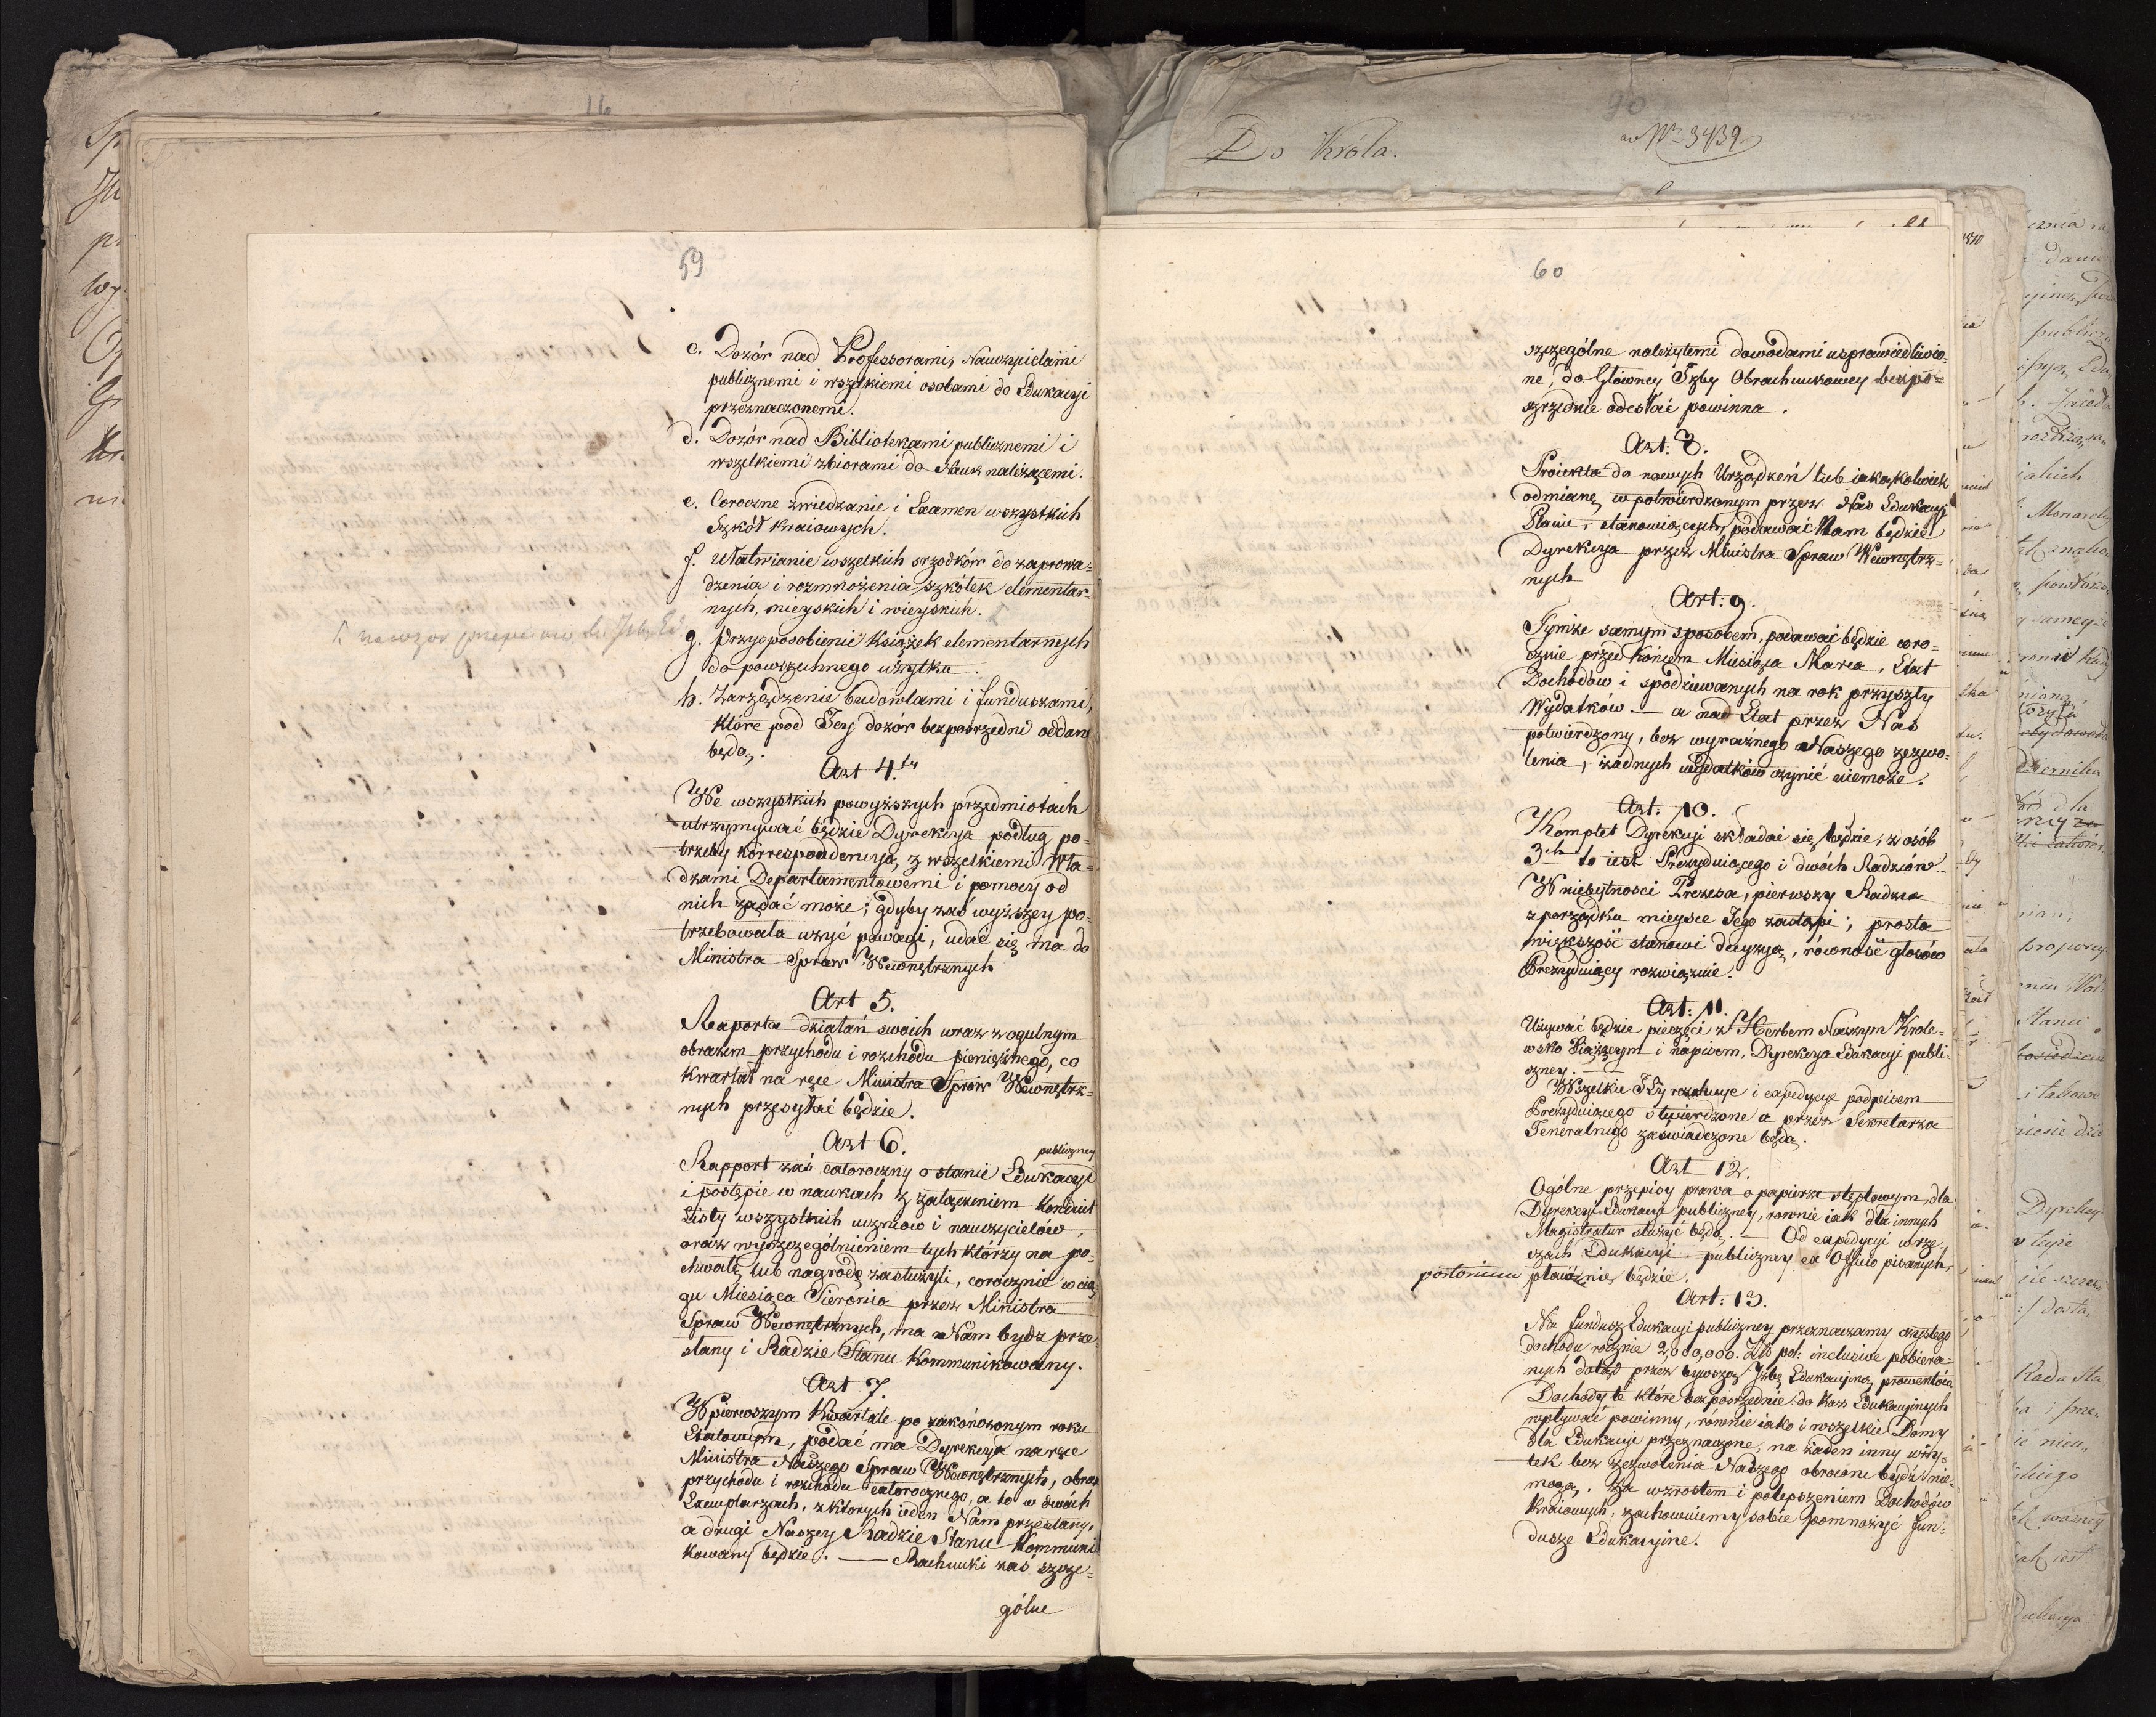 16
59
c. Dozór nad Professorami, Nauczycielami
publicznemi i wszelkiemi osobami do Edukacyi
przeznaczonemi.
d. Dozór nad Bibliotekami publicznemi i
wszelkiemi zbiorami do Nauk należącemi.
e. Coroczne zwiedzanie i Examen wszystkich
Szkół kraiowych.
f. Ułatwianie wszelkich srzodków do zaprowa=
dzenia i rozmnożenia szkółek elementar=
nych, mieyskich i wieyskich.
g. Przysposobienie książek elementarnych
do powszechnego użytku.
h. Zarządzenie budowlami i funduszami,
które pod Jey dozór bezpośrzedni oddane
będą.
Art 4.ty
We wszystkich powyższych przedmiotach
utrzymywać będzie Dyrekcya podług po=
trzeby korrespondencyą z wszelkiemi Wła=
dzami Departamentowemi i pomocy od
nich żądać może; gdyby zaś wyższey po=
trzebowała użyć powagi, udać się ma do
Ministra Spraw Wewnętrznych
Art 5.
Raporta działań swoich wraz z ogulnym
obrazem przychodu i rozchodu pieniężnego, co
kwartał na ręce Ministra Spraw Wewnętrz=
nych przesyłać będzie.
Art 6.
publiczney
Rapport zaś całoroczny o stanie Edukacyi
i postępie w naukach z załączeniem Konduit
Listy wszystkich uczniow i nauczycielów,
oraz wyszczególnieniem tych którzy na po=
chwałę lub nagrodę zasłużyli, corocznie w cią
gu Miesiąca Sierpnia przez Ministra
Spraw Wewnętrznych, ma Nam bydz prze
słany i Radzie Stanu kommunikowany.
Art 7.
W pierwszym Kwartale po zakończonym roku
Etatowym, podać ma Dyrekcya na ręce
Ministra Naszego Spraw Wewnętrznych, obraz
przychodu i rozchodu całorocznego, a to w dwóch
Exemplarzach, z których ieden Nam przesłany,
a drugi Naszey Radzie Stanu Kommuni
kowany będzie. — Rachunki zaś szcze=
gólne
Do Króla.
90
ad Nro 3439
60
szczególne należytemi dowodami usprawiedliwio=
ne, do Główney Izby Obrachunkowey bezpo=
szrzednie odesłać powinna.
Art: 8.
Proiekta do nowych Urządzeń lub iakąkolwiek
odmianę w potwierdzonym przez Nas Edukacyi
Planie, stanowiących, podawać Nam będzie
Dyrekcya przez Ministra Spraw Wewnętrz=
nych
Art: 9.
Tymże samym sposobem, podawać będzie coro=
cznie przed Końcem Miesiąca Marca, Etat
Dochodów i spodziewanych na rok przyszły
Wydatków — a nad Etat przez Nas
potwierdzony, bez wyraźnego Naszego zezwo=
lenia, żadnych wydatków czynić niemoże.
Art: 10.
Komplet Dyrekcyi składać się będzie, z osób
3ch to iest Prezyduiącego i dwóch Radzców.
W niebytności Prezesa, pierwszy Radzca
z porządku mieysce Jego zastąpi; prosta
większość stanowi decyzyą, równość głosów
Prezyduiący rozwiązuie.
Art: 11.
Używać będzie pieczęci z Herbem Naszym Krole=
wsko Xiążęcym i napisem, Dyrekcya Edukacyi publi=
czney.
Wszelkie Jey rezolucye i expedycye podpisem
Prezyduiącego stwierdzone a przez Sekretarza
Jeneralnego zaświadczone będą.
Art 12.
Ogólne przepisy prawa o papierze stęplowym, dla
Dyrekcyi Edukacyi publiczney, rownie iak dla innych
Magistratur służyć będą. — Od expedycyi w rze
czach Edukacyi publiczney ex Officio pisanych,
portorium płacóne będzie.
Art: 13.
Na fundusz Edukacyi publiczney przeznaczamy czystego
dochodu rocznie 2,000,000. Złt. pol: inclusive pobiera=
nych dotąd przez bywszą Izbę Edukacyiną prowentów
Dochody te które bezpośrzednie do kass Edukacyinych
wpływać powinny, równie iako i wszelkie Domy
dla Edukacyi przeznaczone, na żaden inny uży=
tek bez zezwolenia Naszego obrocone bydź nie=
mogą. Za wzrostem i polepszeniem Dochodów
Kraiowych, zachowuiemy sobie pomnożyć fun=
dusze Edukacyine.